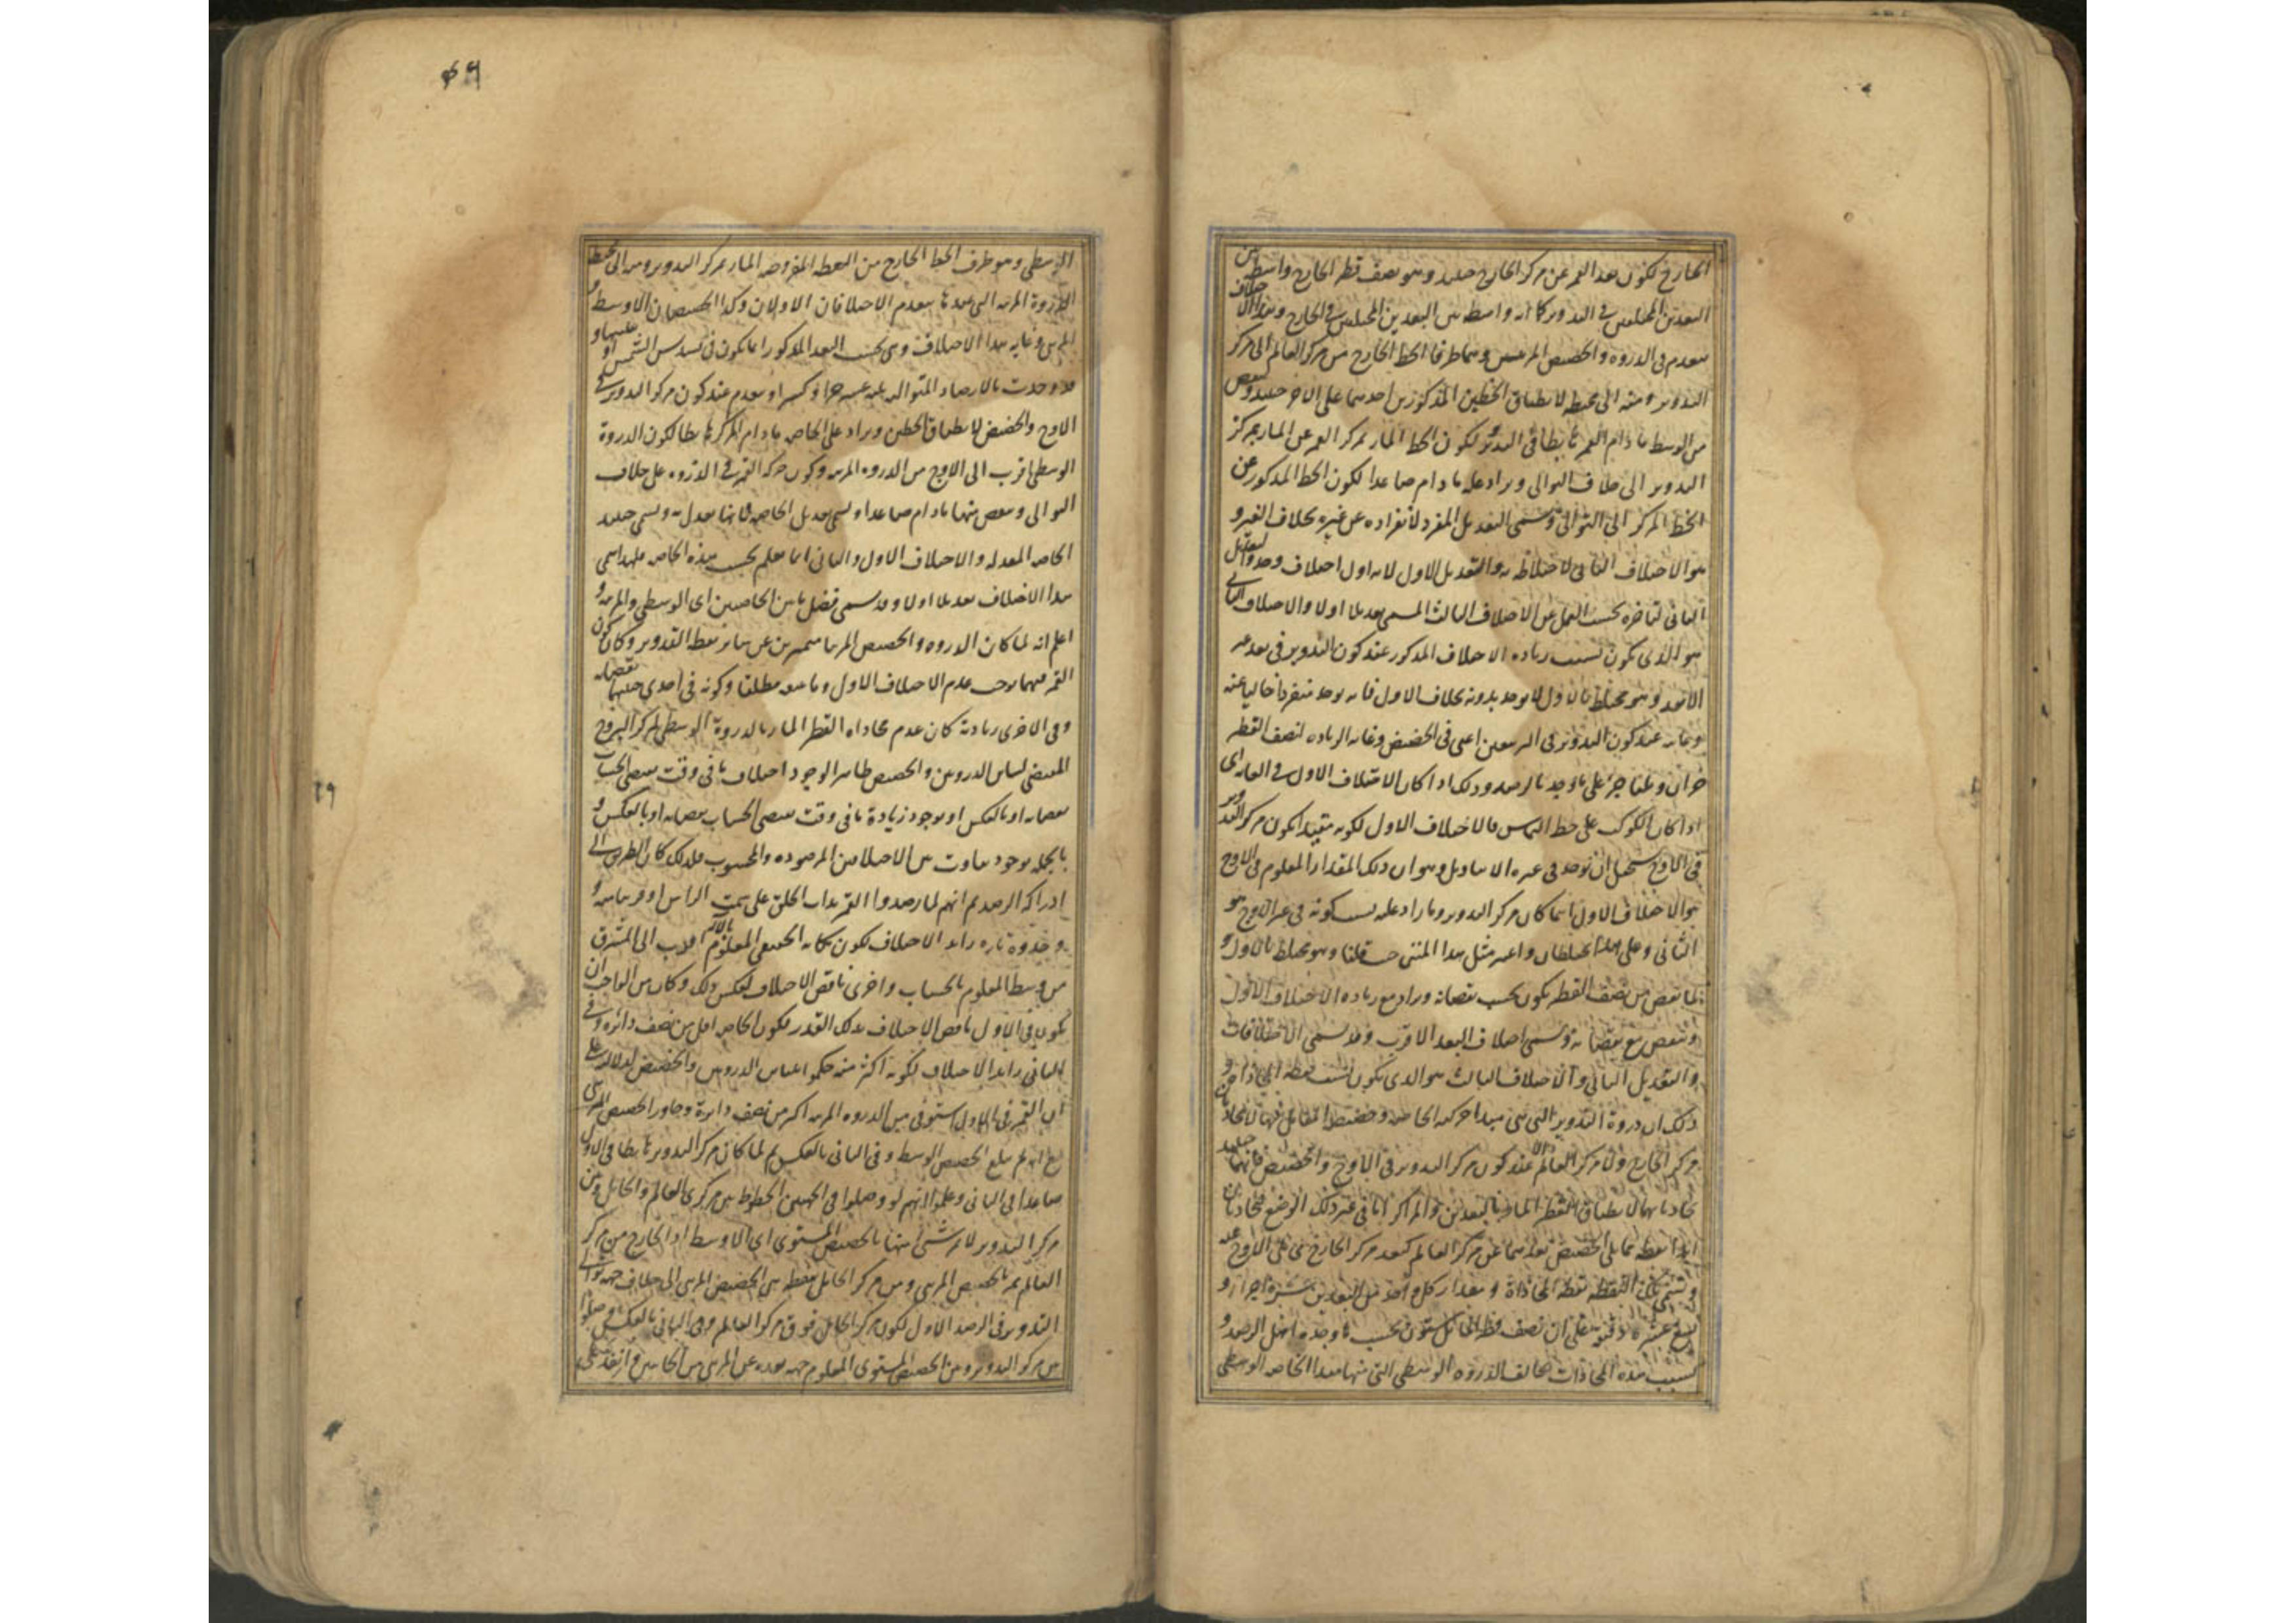 الخارج لكون بعد القمر عن مركز الخارج حينئذ وهو نصف قطر الخارج واسطة بين
البعدين المختلفين في التدوير كما انه واسطة بين البعدين المختلفين في الخارج وهذا الاختلاف
ينعدم في الذروة والحضيض المرئيين وهما طرفا الخط الخارج من مركز العالم الى مركز
التدوير ومنه الى محيطه لانطباق الخطين المذكورين احدهما على الاخر حينئذ وينقص
من الوسط ما دام القمر هابطا في التدوير لكون الخط المار بمركز القمر عن المار بمركز
التدوير الى خلاف التوالي ويزاد عليه ما دام صاعدا لكون الخط المذكور عن
الخط المركز الى التوالي وتسمى التعديل المفرد لانفراده عن غيره بخلاف الغير و
هو الاختلاف الثاني لاختلاطه به والتعديل الاول لانه اول اختلاف وجد والتعديل
الثاني لتاخره بحسب العمل عن الاختلاف الثالث المسمى تعديلا اولا والاختلاف الثاني
هو الذي يكون بسبب زيادة الاختلاف المذكور عند كون التدوير في بعد غير
الابعد وهو مختلط بالاول لا يوجد بدونه بخلاف الاول فانه يوجد منفردا خاليا عنه
وغايته عند كون التدوير في التربيعين اعني في الحضيض وغاية الزيادة لنصف القطر
جزآن وثلثا جزء على ما وجد بالرصد وذلك اذا كان الاختلاف الاول في الغاية اي
اذا كان الكوكب على خط التماس فالاختلاف الاول لكونه مقيدا بكون مركز التدوير
في الاوج يستحيل ان يوجد في غيره الا بتاويل وهو ان ذلك المقدار المعلوم في الاوج
هو الاختلاف الاول اينما كان مركز التدوير وما زاد عليه بسبب كونه في غير الاوج هو
الثاني وعلى هذا يختلطان واعتبر مثل هذا المعنى حيث قلنا وهو مختلط بالاول و
لما نقص من نصف القطر يكون بحسب نقصانه ويزاد مع زيادة الاختلاف الاول
وينقص مع نقصانه وتسمى اختلاف البعد الاقرب وقد تسمى الاختلافات
والتعديل الثاني والاختلاف الثالث هو الذي يكون بسبب نقطة المحاذاة و
ذلك ان ذروة التدوير التي هي مبدا حركته الخاصة وحضيضه المقابل لها لا تحاذيان
مركز الخارج ولا مركز العالم الا عند كون مركز التدوير في الاوج والحضيض فانهما حينئذ
تحاذيانهما لانطباق القطر المار بالبعدين والمراكز اما في غير ذلك الوضع فتحاذيان
ابدا نقطة مما يلي الحضيض بعدها عن مركز العالم كبعد مركز الخارج مما يلي الاوج عنه
وتسمى تلك النقطة نقطة المحاذاة ومقدار كل واحد من البعدين عشرة اجزاء و
تسع عشرة دقيقة على ان نصف قطر المائل ستون بحسب ما وجده اهل الرصد و
بسبب هذه المحاذات تخالف الذروة الوسطى التي منها مبدا الخاصة الوسطى
٤٩
الوسطى وهو طرف الخط الخارج من النقطة المفروضة المار بمركز التدوير ومنه الى محيطه
الذروة المرئية التي عندها ينعدم الاختلافان الاولان وكذا الحضيضان الاوسط و
المرئي وغاية هذا الاختلاف وهي بحسب البعد المذكور انما يكون في تسديس الشمس او
قد وجدت بالارصاد المتوالية ثلثة عشر جزءا وكسرا وينعدم عند كون مركز التدوير في
الاوج والحضيض لانطباق الخطين ويزاد على الخاصة ما دام المركز هابطا لكون الذروة
الوسطى اقرب الى الاوج من الذروة المرئية وكون حركة القمر في الذروة على خلاف
التوالي وينقص منها ما دام صاعدا وتسمى تعديل الخاصة فانها تعدل به وتسمى حينئذ
الخاصة المعدلة والاختلاف الاول والثاني انما يعلم بحسب هذه الخاصة فلهذا سمي
هذا الاختلاف تعديلا اولا وقد يسمى فضل ما بين الخاصتين اي الوسطى والمرئية و
اعلم انه لما كان الذروة والحضيض المرئيان متميزين عن سائر نقط التدوير وكان كون
القمر فيهما يوجب عدم الاختلاف الاول وما بينهما مطلقا وكونه في احدى جنبيهما نقصانه
وفي الاخرى زيادته كان عدم محاذاة القطر المار بالذروة الوسطى لمركز البروج
المقتضي لتباين الذروتين والحضيضين ظاهر الوجود اختلاف ما في وقت يقتضي الحساب
نقصانه او بالعكس او بوجود زيادة ما في وقت يقتضي الحساب نقصانه او بالعكس و
بالجملة بوجود تفاوت بين الاختلافين المرصودة والمحسوب فلذلك كان الطريق الى
ادراكه الرصد ثم انهم لما رصدوا القمر بذات الحلق على سمت الراس او قريبا منه و
وجدوه تارة زائد الاختلاف لكون مكانه الحقيقي المعلوم بالالة اقرب الى المشرق
من وسطه المعلوم بالحساب واخرى ناقص الاختلاف لعكس ذلك وكان من الواجب ان
يكون في الاول ناقص الاختلاف بذلك القدر لكون الخاصة اقل من نصف دائرة وفي
الثاني زائد الاختلاف لكونه اكثر منه حكموا بتباين الذروتين والحضيضين لدلالته على
ان القمر في الاول استوفى من الذروة المرئية اكثر من نصف دائرة وجاوز الحضيض المرئي
مع انه لم يبلغ الحضيض الاوسط وفي الثاني بالعكس ثم لما كان مركز التدوير هابطا في الاول
صاعدا في الثاني وعلموا انهم لو وصلوا في الجهتين الخطوط بين مركزي العالم والحامل وبين
مركز التدوير لم يمر شيء منها بالحضيض المستوي اي الاوسط اذ الخارج من مركز
العالم يمر بالحضيض المرئي ومن مركز الحامل بنقطة بين الحضيض المرئي الى خلاف جهة توالي
التدوير في الرصد الاول لكون مركز الحامل فوق مركز العالم وفي الثاني بالعكس وصلوا
بين مركز التدوير وبين الحضيض المستوي المعلوم جهة بعده عن المرئي من الجانبين